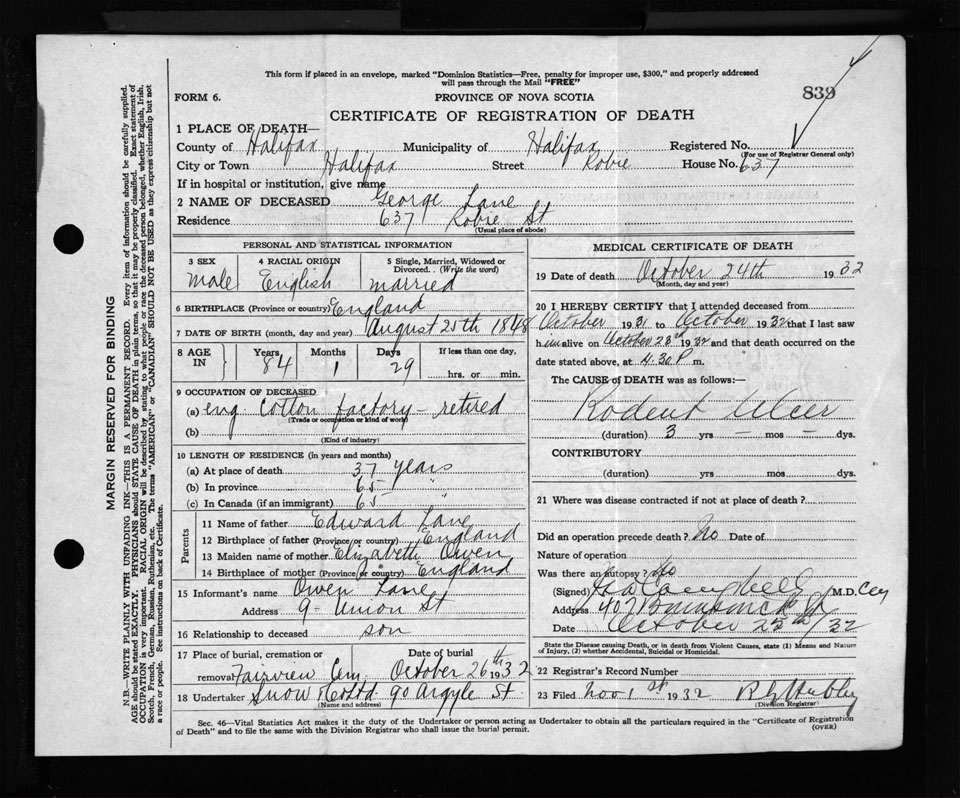 This form if placed in an envelope, marked "Dominion Statistics—Free, penalty for improper use, $300," and properly addressed
will pass through the Mail "FREE"
FORM 6.
PROVINCE OF NOVA SCOTIA
839
CERTIFICATE OF REGISTRATION OF DEATH
1 PLACE OF DEATH—
County of Halifax Municipality of Halifax Registered No.
(For use of Registrar General only)
City or Town Halifax Street Robie House No. 637
If in hospital or institution, give name
2 NAME OF DECEASED George Lane
Residence 637 Robie St
(Usual place of abode)
PERSONAL AND STATISTICAL INFORMATION
3 SEX
Male
4 RACIAL ORIGIN
English
5 Single, Married, Widowed or
Divorced.. (Write the word)
married
6 BIRTHPLACE (Province or country) England
7 DATE OF BIRTH (month, day and year) August 25th 1848
8 AGE IN
Years 84
Months 1
Days 29
If less than one day,
hrs. or min.
9 OCCUPATION OF DECEASED
(a) eng. Cotton factory - retired
(Trade or occupation or kind of work)
(b)
(Kind of industry)
10 LENGTH OF RESIDENCE (in years and months)
(a) At place of death 37 years
(b) In province 65 "
(c) In Canada (if an immigrant) 65 "
Parents
11 Name of father Edward Lane
12 Birthplace of father (Province or country) England
13 Maiden name of mother Elizabeth Owen
14 Birthplace of mother (Province or country) England
15 Informant's name Owen Lane
Address 9 - Union St
16 Relationship to deceased son
17 Place of burial, cremation or
removal Fairview Cem.
Date of burial
October 26th 1932
18 Undertaker Snow & Co Ltd 90 Argyle St
(Name and address)
MEDICAL CERTIFICATE OF DEATH
19 Date of death October 24th 1932
(Month, day and year)
20 I HEREBY CERTIFY that I attended deceased from
October 1931 to October 1932 that I last saw
h im alive on October 23d 1932 and that death occurred on the
date stated above, at 4.30 P m.
The CAUSE of DEATH was as follows:—
Rodent Ulcer
(duration) 3 yrs — mos — dys.
CONTRIBUTORY
(duration) yrs mos dys.
21 Where was disease contracted if not at place of death?
Did an operation precede death? No Date of
Nature of operation
Was there an autopsy? No
(Signed) Campbell M.D.
Address 407 Brunswick St
Date October 25th/32
State the Disease causing Death, or in death from Violent Causes, state (1) Means and Nature
of Injury, (2) whether Accidental, Suicidal or Homicidal.
22 Registrar's Record Number
23 Filed Nov 1st 1932
(Division Registrar)
Sec. 46—Vital Statistics Act makes it the duty of the Undertaker or person acting as Undertaker to obtain all the particulars required in the "Certificate of Registration
of Death" and to file the same with the Division Registrar who shall issue the burial permit.
(OVER)
MARGIN RESERVED FOR BINDING
N.B.—WRITE PLAINLY WITH UNFADING INK—THIS IS A PERMANENT RECORD. Every item of information should be carefully supplied.
AGE should be stated EXACTLY. PHYSICIANS should STATE CAUSE OF DEATH in plain terms, so that it may be properly classified. Exact statement of
OCCUPATION is very important. RACIAL ORIGIN will be described by stating to what people or race the deceased person belonged, whether English, Irish,
Scotch, French, German, Russian, Ruthenian, etc. The terms "AMERICAN" or "CANADIAN" SHOULD NOT BE USED as they express citizenship but not
a race or people. See instructions on back of Certificate.